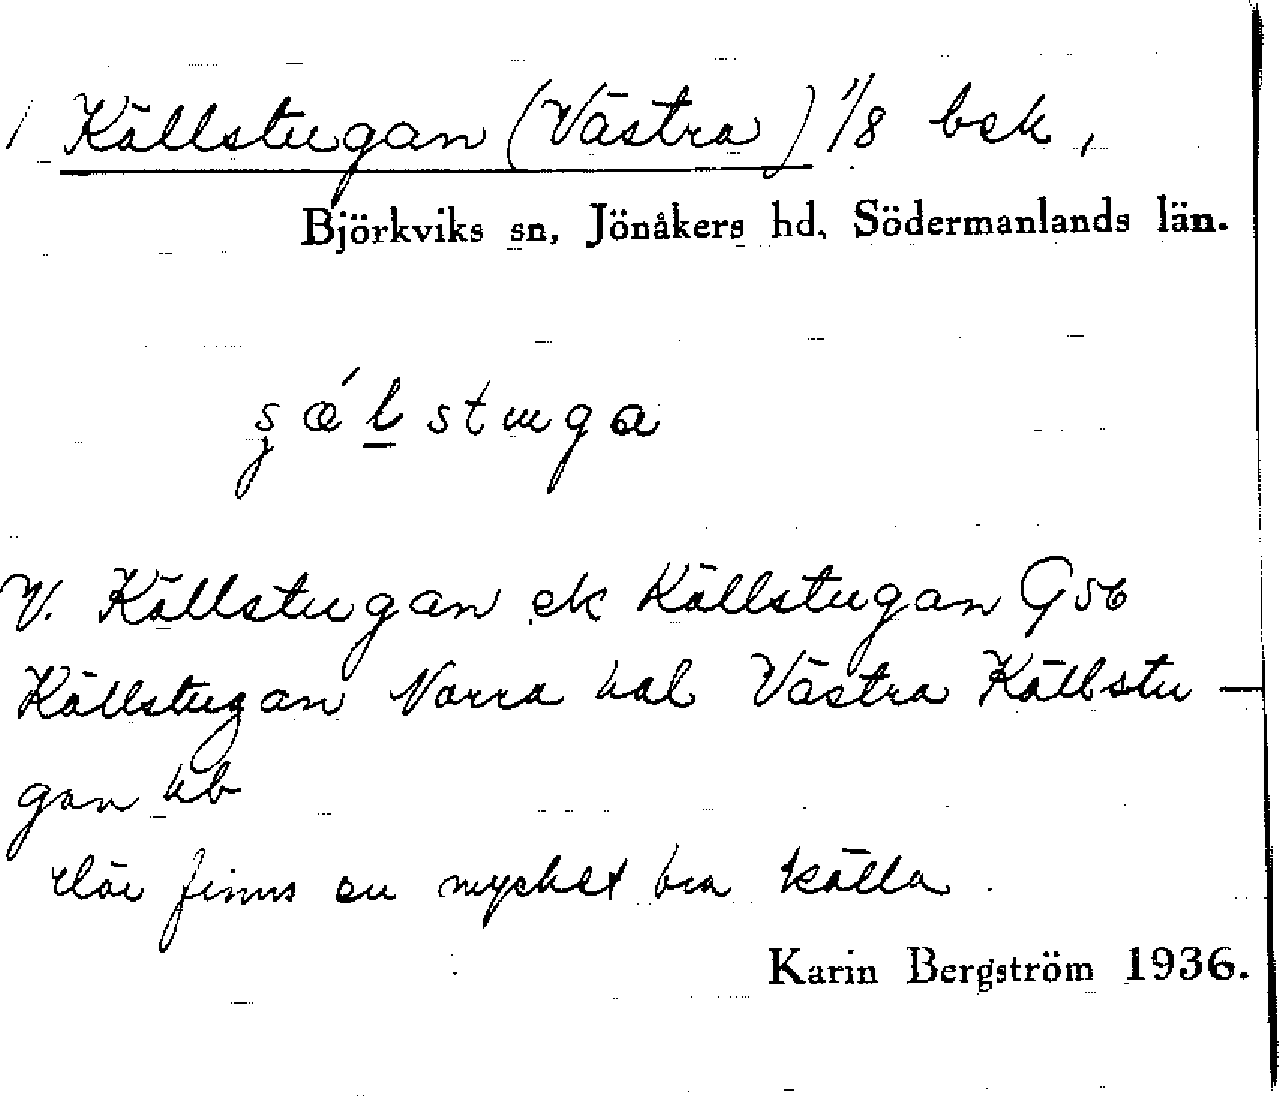 Källstugan (Västra) 1/8 bsk,
Björkviks sn, Jönåkers hd, Södermanlands län.
V. Källstugan ek Källstugan G56
Källstugan Norra hal Västra Källstu-
gan hb
där finns en mycket bra källa.
Karin Bergström 1936.